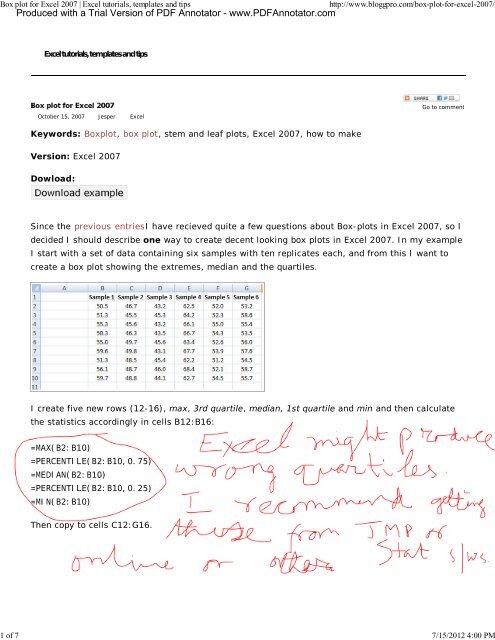 Box plot for Excel 2007 | Excel tutorials, templates and tips
http://www.bloggpro.com/box-plot-for-excel-2007/
Produced with a Trial Version of PDF Annotator - www.PDFAnnotator.com
Excel tutorials, templates and tips
Box plot for Excel 2007
SHARE
Go to comment
October 15, 2007 Jesper Excel
Keywords: Boxplot, box plot, stem and leaf plots, Excel 2007, how to make
Version: Excel 2007
Dowload:
Download example
Since the previous entriesI have recieved quite a few questions about Box-plots in Excel 2007, so I
decided I should describe one way to create decent looking box plots in Excel 2007. In my example
I start with a set of data containing six samples with ten replicates each, and from this I want to
create a box plot showing the extremes, median and the quartiles.
A B C D E F G
1 Sample 1 Sample 2 Sample 3 Sample 4 Sample 5 Sample 6
2 50.5 46.7 43.2 62.5 52.0 53.2
3 51.3 45.5 45.3 64.2 52.3 58.6
4 55.3 45.6 43.2 66.1 55.0 55.4
5 50.3 46.3 43.5 66.7 54.3 53.5
6 55.0 49.7 45.6 63.4 52.6 56.0
7 59.6 49.8 43.1 67.7 53.9 57.6
8 51.3 48.5 45.4 62.2 51.2 54.5
9 56.1 48.7 46.0 68.4 52.1 58.7
10 59.7 48.8 44.1 62.7 54.5 55.7
11
I create five new rows (12-16), max, 3rd quartile, median, 1st quartile and min and then calculate
the statistics accordingly in cells B12:B16:
=MAX(B2:B10)
=PERCENTILE(B2:B10,0.75)
=MEDIAN(B2:B10)
=PERCENTILE(B2:B10,0.25)
=MIN(B2:B10)
Then copy to cells C12:G16.
Excel might produce
wrong quartiles.
I recommend getting
these from JMP or
online or other Stat s/ws.
1 of 7
7/15/2012 4:00 PM